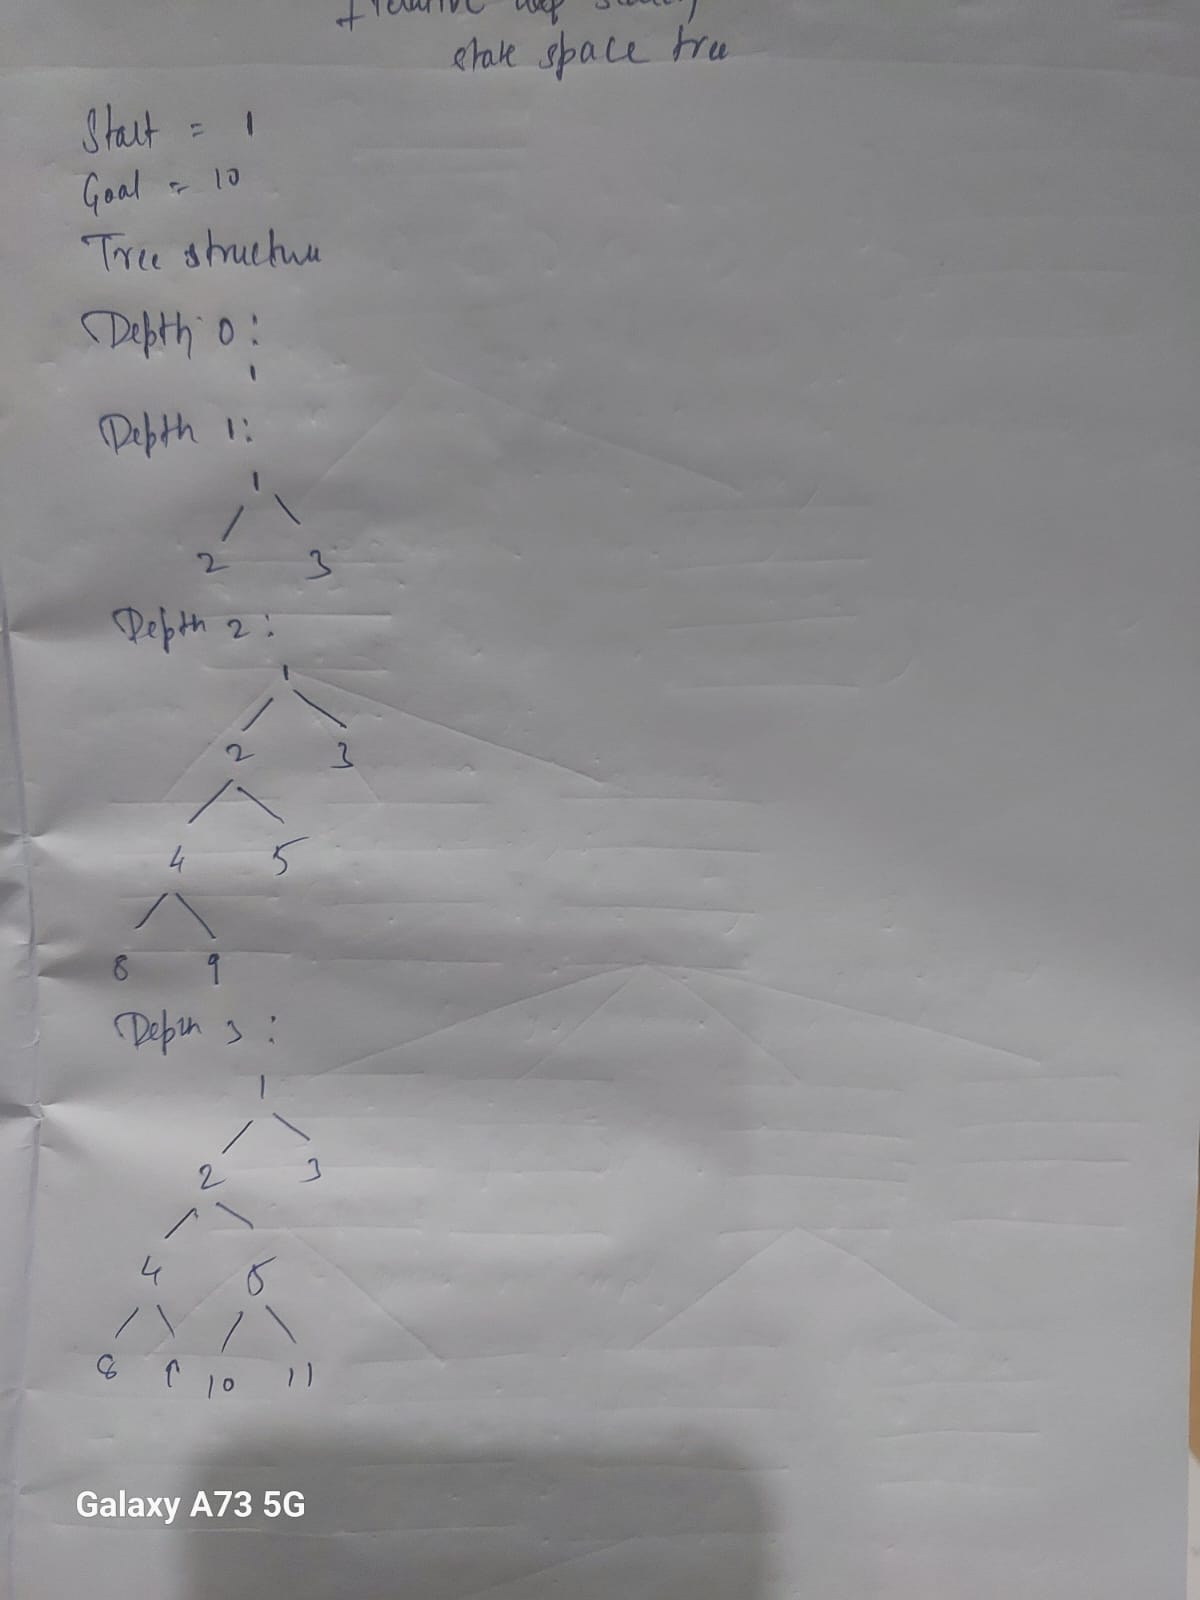 state space tree
Start = 1
Goal = 10
Tree structure
Depth 0:
1
Depth 1:
1
2 3
Depth 2:
1
2 3
4 5
8 9
Depth 3:
1
2 3
4 5
8 9 10 11
Galaxy A73 5G